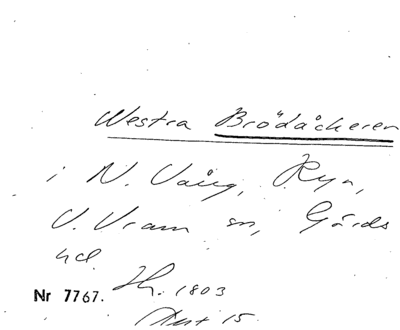 Westra Brödåckeren
i N. Vång, Ryn,
V. Vram sn, Gärds
hd
Nr 7767. Lh. 1803
Akt 15.